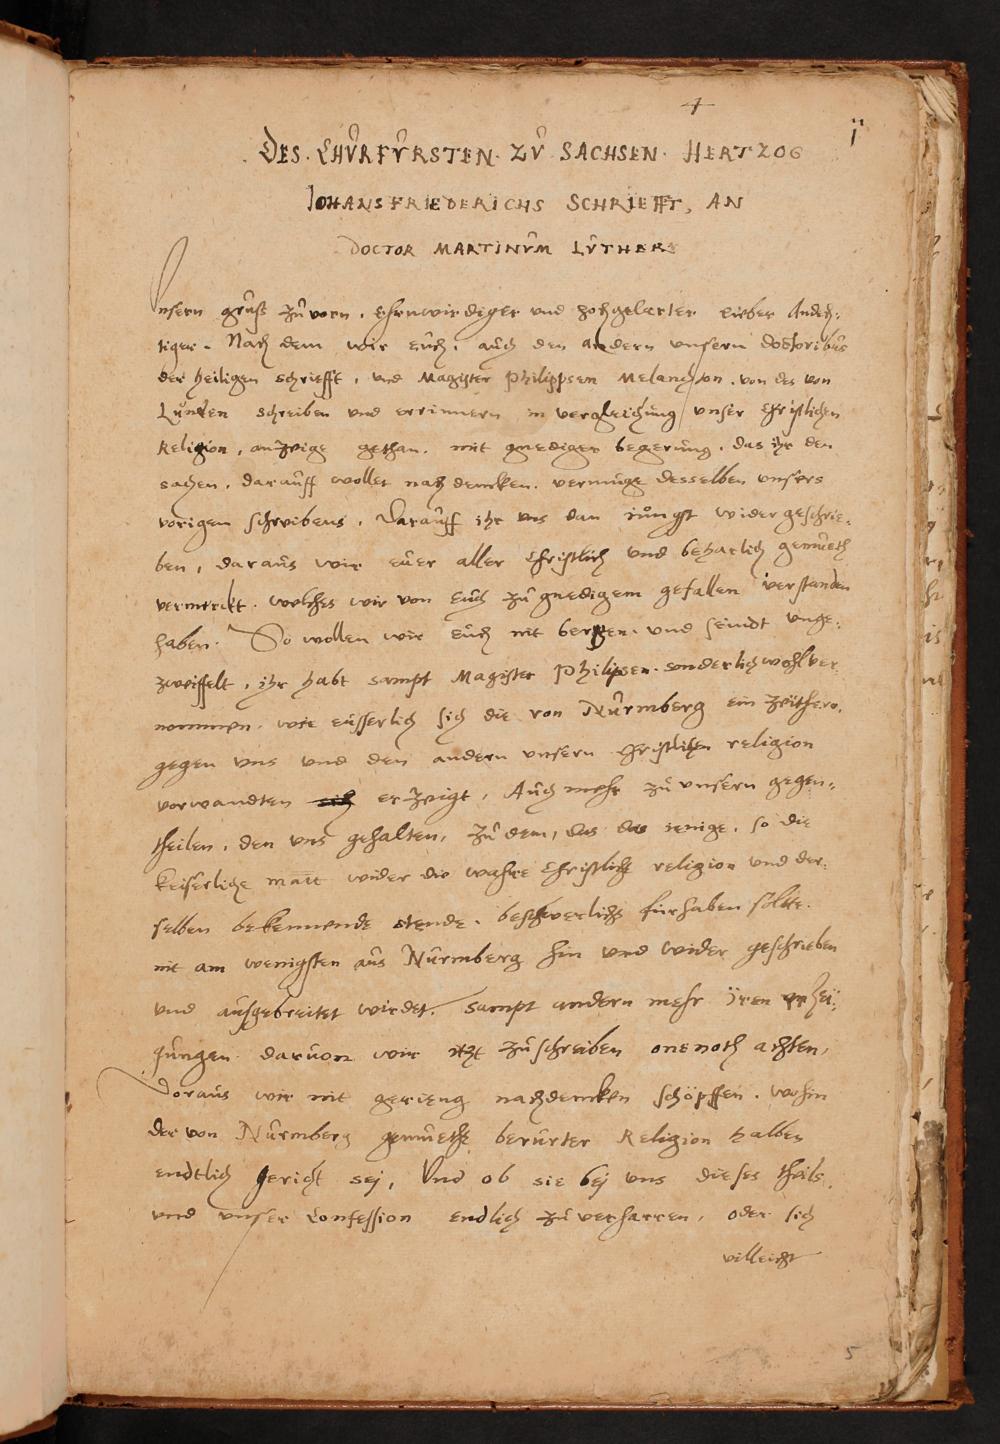 4
ij
DES CHVRFVRSTEN ZV SACHSEN HERTZOG
IOHANS FRIEDERICHS SCHRIEFFT, AN
DOCTOR MARTINVM LVTHER
Vnsern gruß zuuorn, Ehrnwirdiger vnd hochgelarter lieber Andech=
tiger. Nach dem wir Euch, auch den andern vnsern doctoribus
der heiligen schriefft, vnd Magister Philippsen Melanchton, von des von
Lunden schreiben vnd errinnern in vergleichung vnser Christlichen
Religion, anzeige gethan, mit gnediger begerung, das ihr den
sachen, darauff wollet nach dencken, vermuge desselben vnsers
vorigen schreibens, Darauff ihr vns dan iungst wider geschrie=
ben, daraus wir euer aller Christlich vnd beharlich gemueth
vermerckt, welches wir von Euch zu gnedigem gefallen verstanden
haben. So wollen wir Euch nit bergen, vnd seindt vnge=
zweiffelt, ihr habt sampt Magister Philipsen, sonderlich wohl ver=
nommen, wie eusserlich sich die von Nurmberg ein zeither
gegen vns vnd den andern vnsern Christlichen religion
vorwandten erzeigt, Auch mehr zu vnsern gegen=
theilen, den vns gehalten, Zu dem, das das ienige, so die
keiserliche matt wider die wahre Christliche religion vnd der=
selben bekennende stende, beschwerlichs furhaben solte,
nit am wenigsten aus Nurmberg hin vnd wider geschrieben
vnd ausgebreitet wirdet, sampt andern mehr iren erzei=
gungen daruon wir itzt zuschreiben onenoth achten,
Doraus wir nit gerieng nachdencken schöpffen, wohin
der von Nurmberg gemuethe berurter Religion halben
endtlich gericht sej, Vnd ob sie bej vns dieses theils,
vnd vnser Confession endlich zu verharren, oder sich
villeicht
5